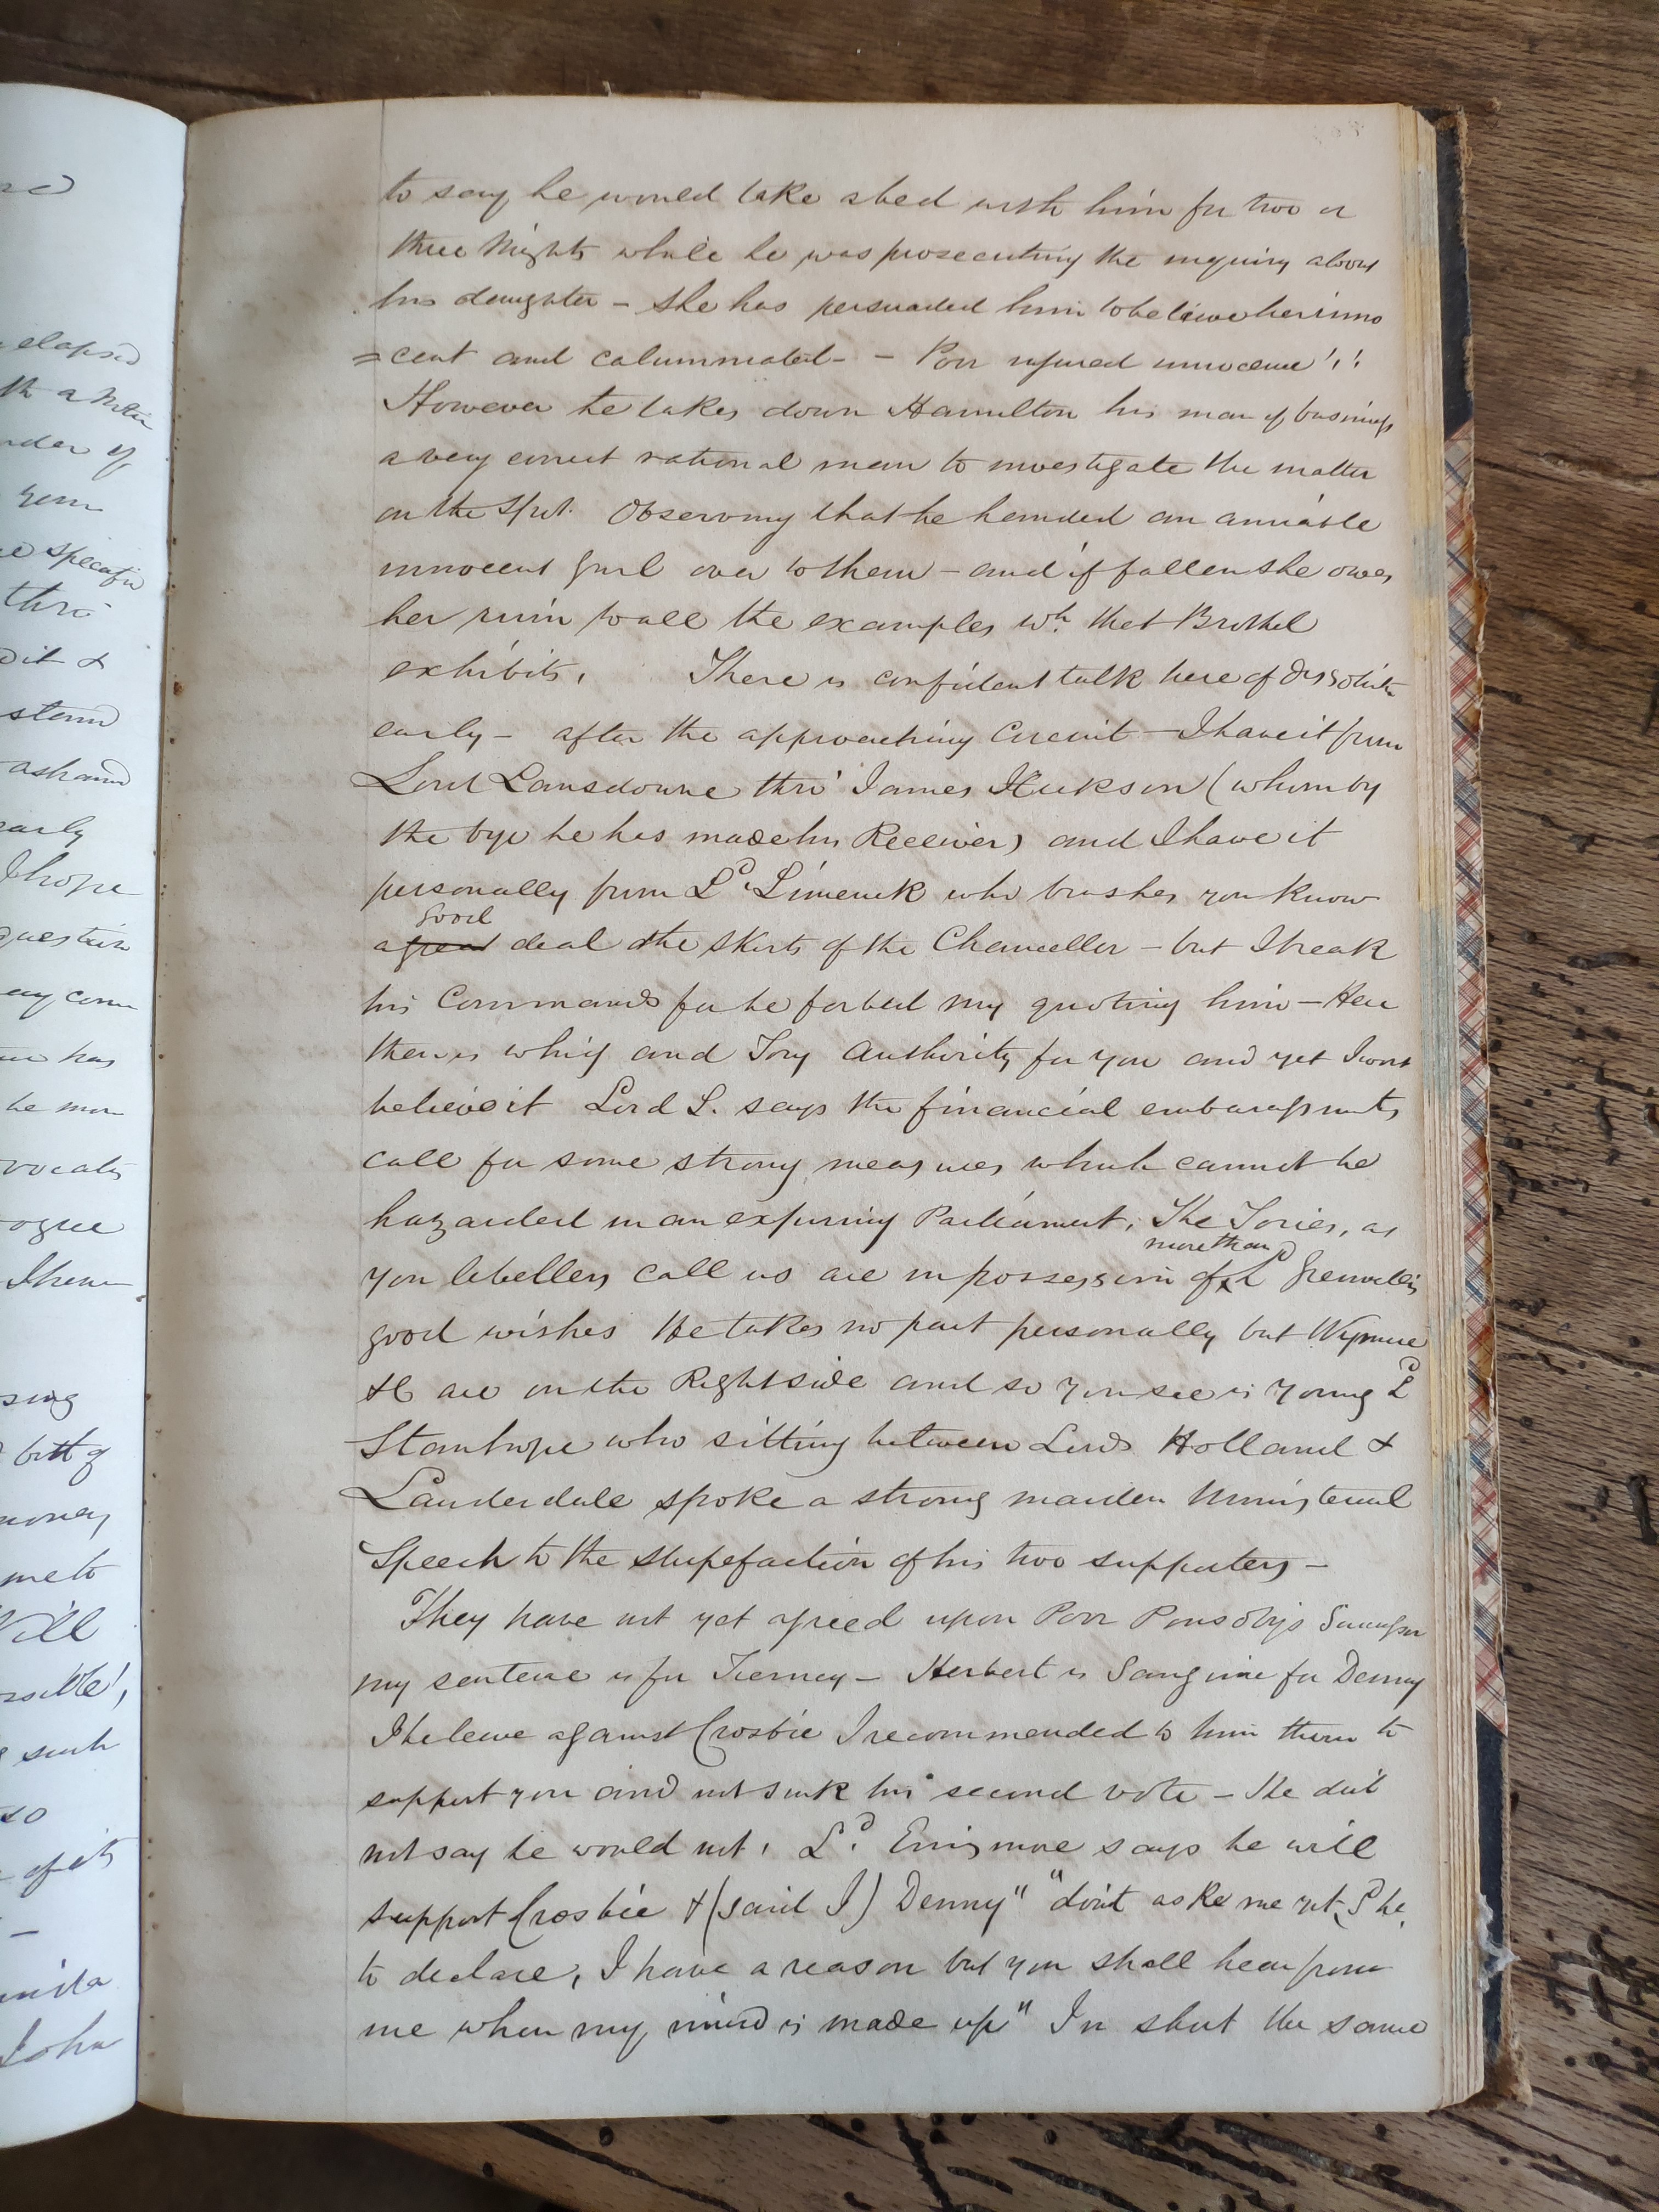 to say he would take a bed with him for two or
three Nights while he was prosecuting the inquiry about
his daughter – She has persuaded him to believe her inno
=cent and calumniated – – Poor injured innocence!!
However he takes down Hamilton his man of business
a very correct rational man to investigate the matter
on the Spot. Observing that he handed an amiable
innocent Girl over to them – and if fallen she owes
her ruin to all the examples wh. that Brothel
exhibits. There is confident talk here of Dissolutn
early – after the approaching Circuit – I have it from
Lord Lansdowne thro' James Hickson (whom by
the bye he has made his Receiver) and I have it
personally from Ld. Limerick who brushes you know
good
a great deal the skirts of the Chancellor – but I break
his Commands for he forbid my quoting him – Here
then is whig and Tory Authority for you and yet I wont
believe it Lord L. says the financial embarassments
call for some strong measures which cannot be
hazarded in an expiring Parliament. The Tories, as
more than
you libellers call us are in possession of Ld Grenvilles
good wishes He takes no part personally but Wynne
&C are on the Right side and so you see is young Ld
Stanhope who sitting between Lords Holland &
Lauderdale spoke a strong maiden Ministerial
Speech to the stupefaction of his two supporters –
They have not yet agreed upon Poor Ponsobys Successor
my sentence is for Tierney – Herbert is Sanguine for Denny
I beleive against Crosbie I recommended to him then to
support you and not sink his second vote – He did
not say he would not. Ld. Ennismore says he will
support Crosbie & (said I) Denny" "don't ask me yet, Sd he,
to declare, I have a reason but you shall hear from
me when my mind is made up" In short the same
elapsed
order of
thro'
dit &
storm
early
I hope
question
any com
has
be mo
ogue
I have
sing
money
me to
Will
such
so
of its
John